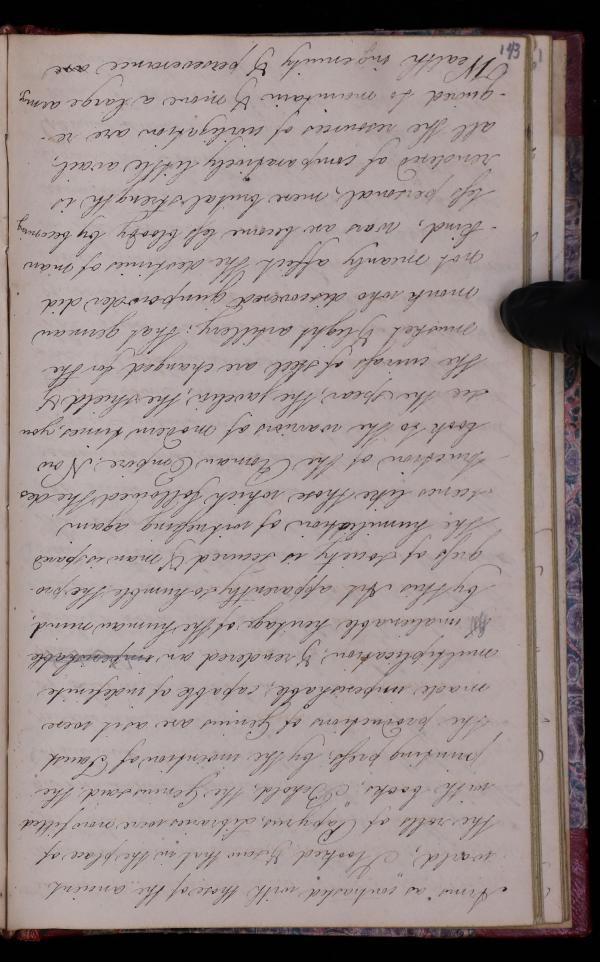 143
times" as contrasted with those of the ancient
world; I looked & saw that in the place of
the rolls of Papyrus, Libraries were now filled
with books. "Behold, the Genius said, the
printing press by the invention of Faust
the productions of Genius are as it were
made imperishable; capable of indefinite
multiplication, & rendered an imperishable
inalienable heritage of the human mind,
by this Art apparently so humble the pro-
gress of Society is secured & man is spared
the humiliation of witnessing again
scenes like those which followed the des
-truction of the Roman Empire. Now
look to the warriors of modern times, you
see the spear, the javelin, the shield &
the cuirass of steel are changed for the
musket & light artillery; that german
monk who discovered gunpowder did
not meanly affect the destinies of man
-kind, wars are become less bloody by becoming
less personal, mere brutal strength is
rendered of comparatively little avail,
all the resources of civilization are re-
-quired to maintain & move a large army
Wealth ingenuity & perseverance are